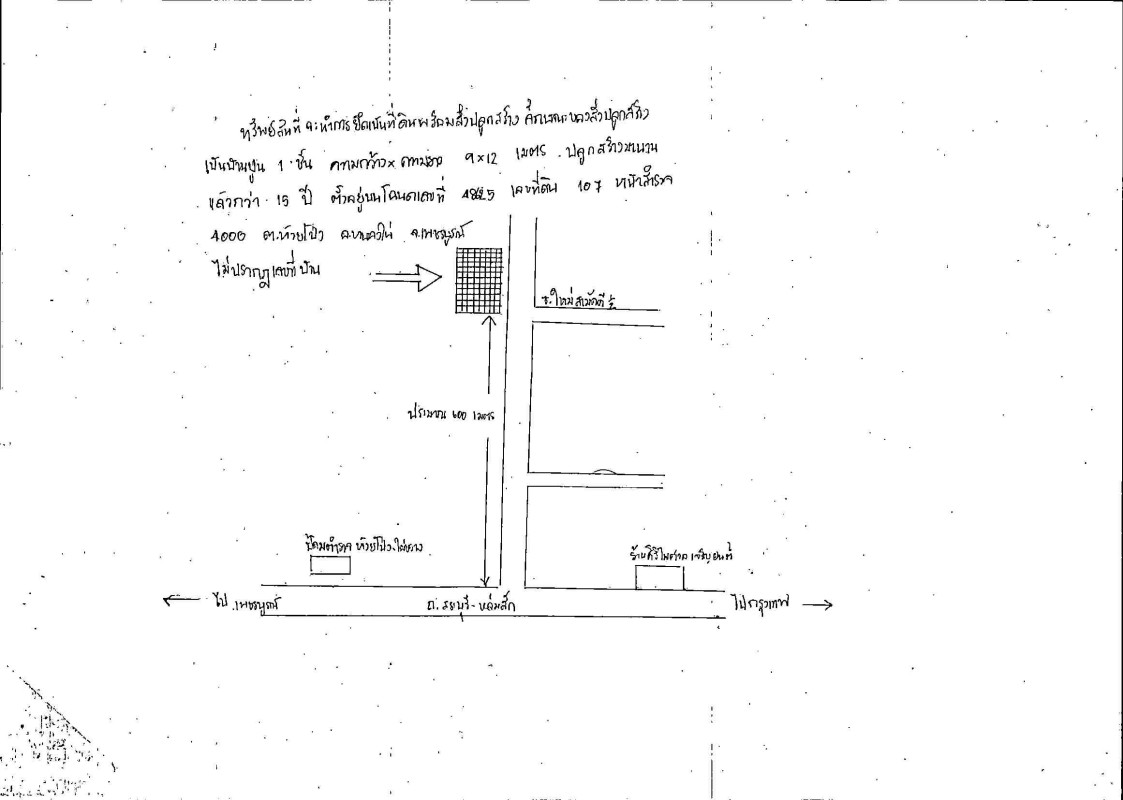 ทรัพย์สินที่จะทำการยึดเป็นที่ดินพร้อมสิ่งปลูกสร้าง ลักษณะของสิ่งปลูกสร้าง
เป็นบ้านปูน 1 ชั้น ความกว้าง x ความยาว 9 x 12 เมตร ปลูกสร้างมานาน
แล้วกว่า 15 ปี ตั้งอยู่บนโฉนดเลขที่ เลขที่ดิน 107 หน้าสำรวจ
4000 ต.ห้วยโป่ง อ.หนองไผ่ จ.เพชรบูรณ์
ไม่ปรากฏเลขที่บ้าน
ซ.ใหม่สามัคคี
ประมาณ 600 เมตร
ป้อมตำรวจ ห้วยโป่ง-ไผ่ขวาง
ร้านศิริไพศาล เจริญยนต์
ไป เพชรบูรณ์
ถ.สระบุรี - หล่มสัก
ไปกรุงเทพฯ